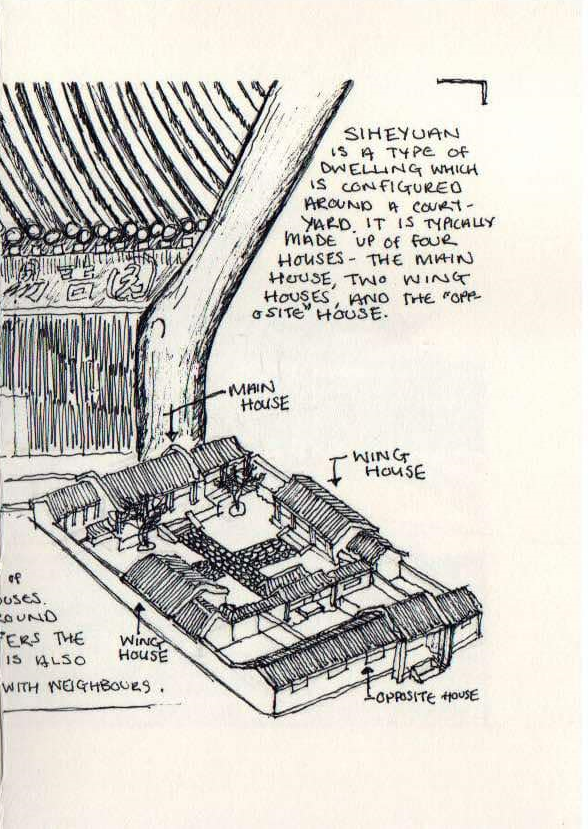 SIHEYUAN
IS A TYPE OF
DWELLING WHICH
IS CONFIGURED
AROUND A COURT-
YARD. IT IS TYPICALLY
MADE UP OF FOUR
HOUSES - THE MAIN
HOUSE, TWO WING
HOUSES, AND THE "OPP-
OSITE" HOUSE.
MAIN
HOUSE
WING
HOUSE
OF
OUSES.
ROUND
ERS THE
IS ALSO
WITH NEIGHBOURS.
WING
HOUSE
OPPOSITE HOUSE